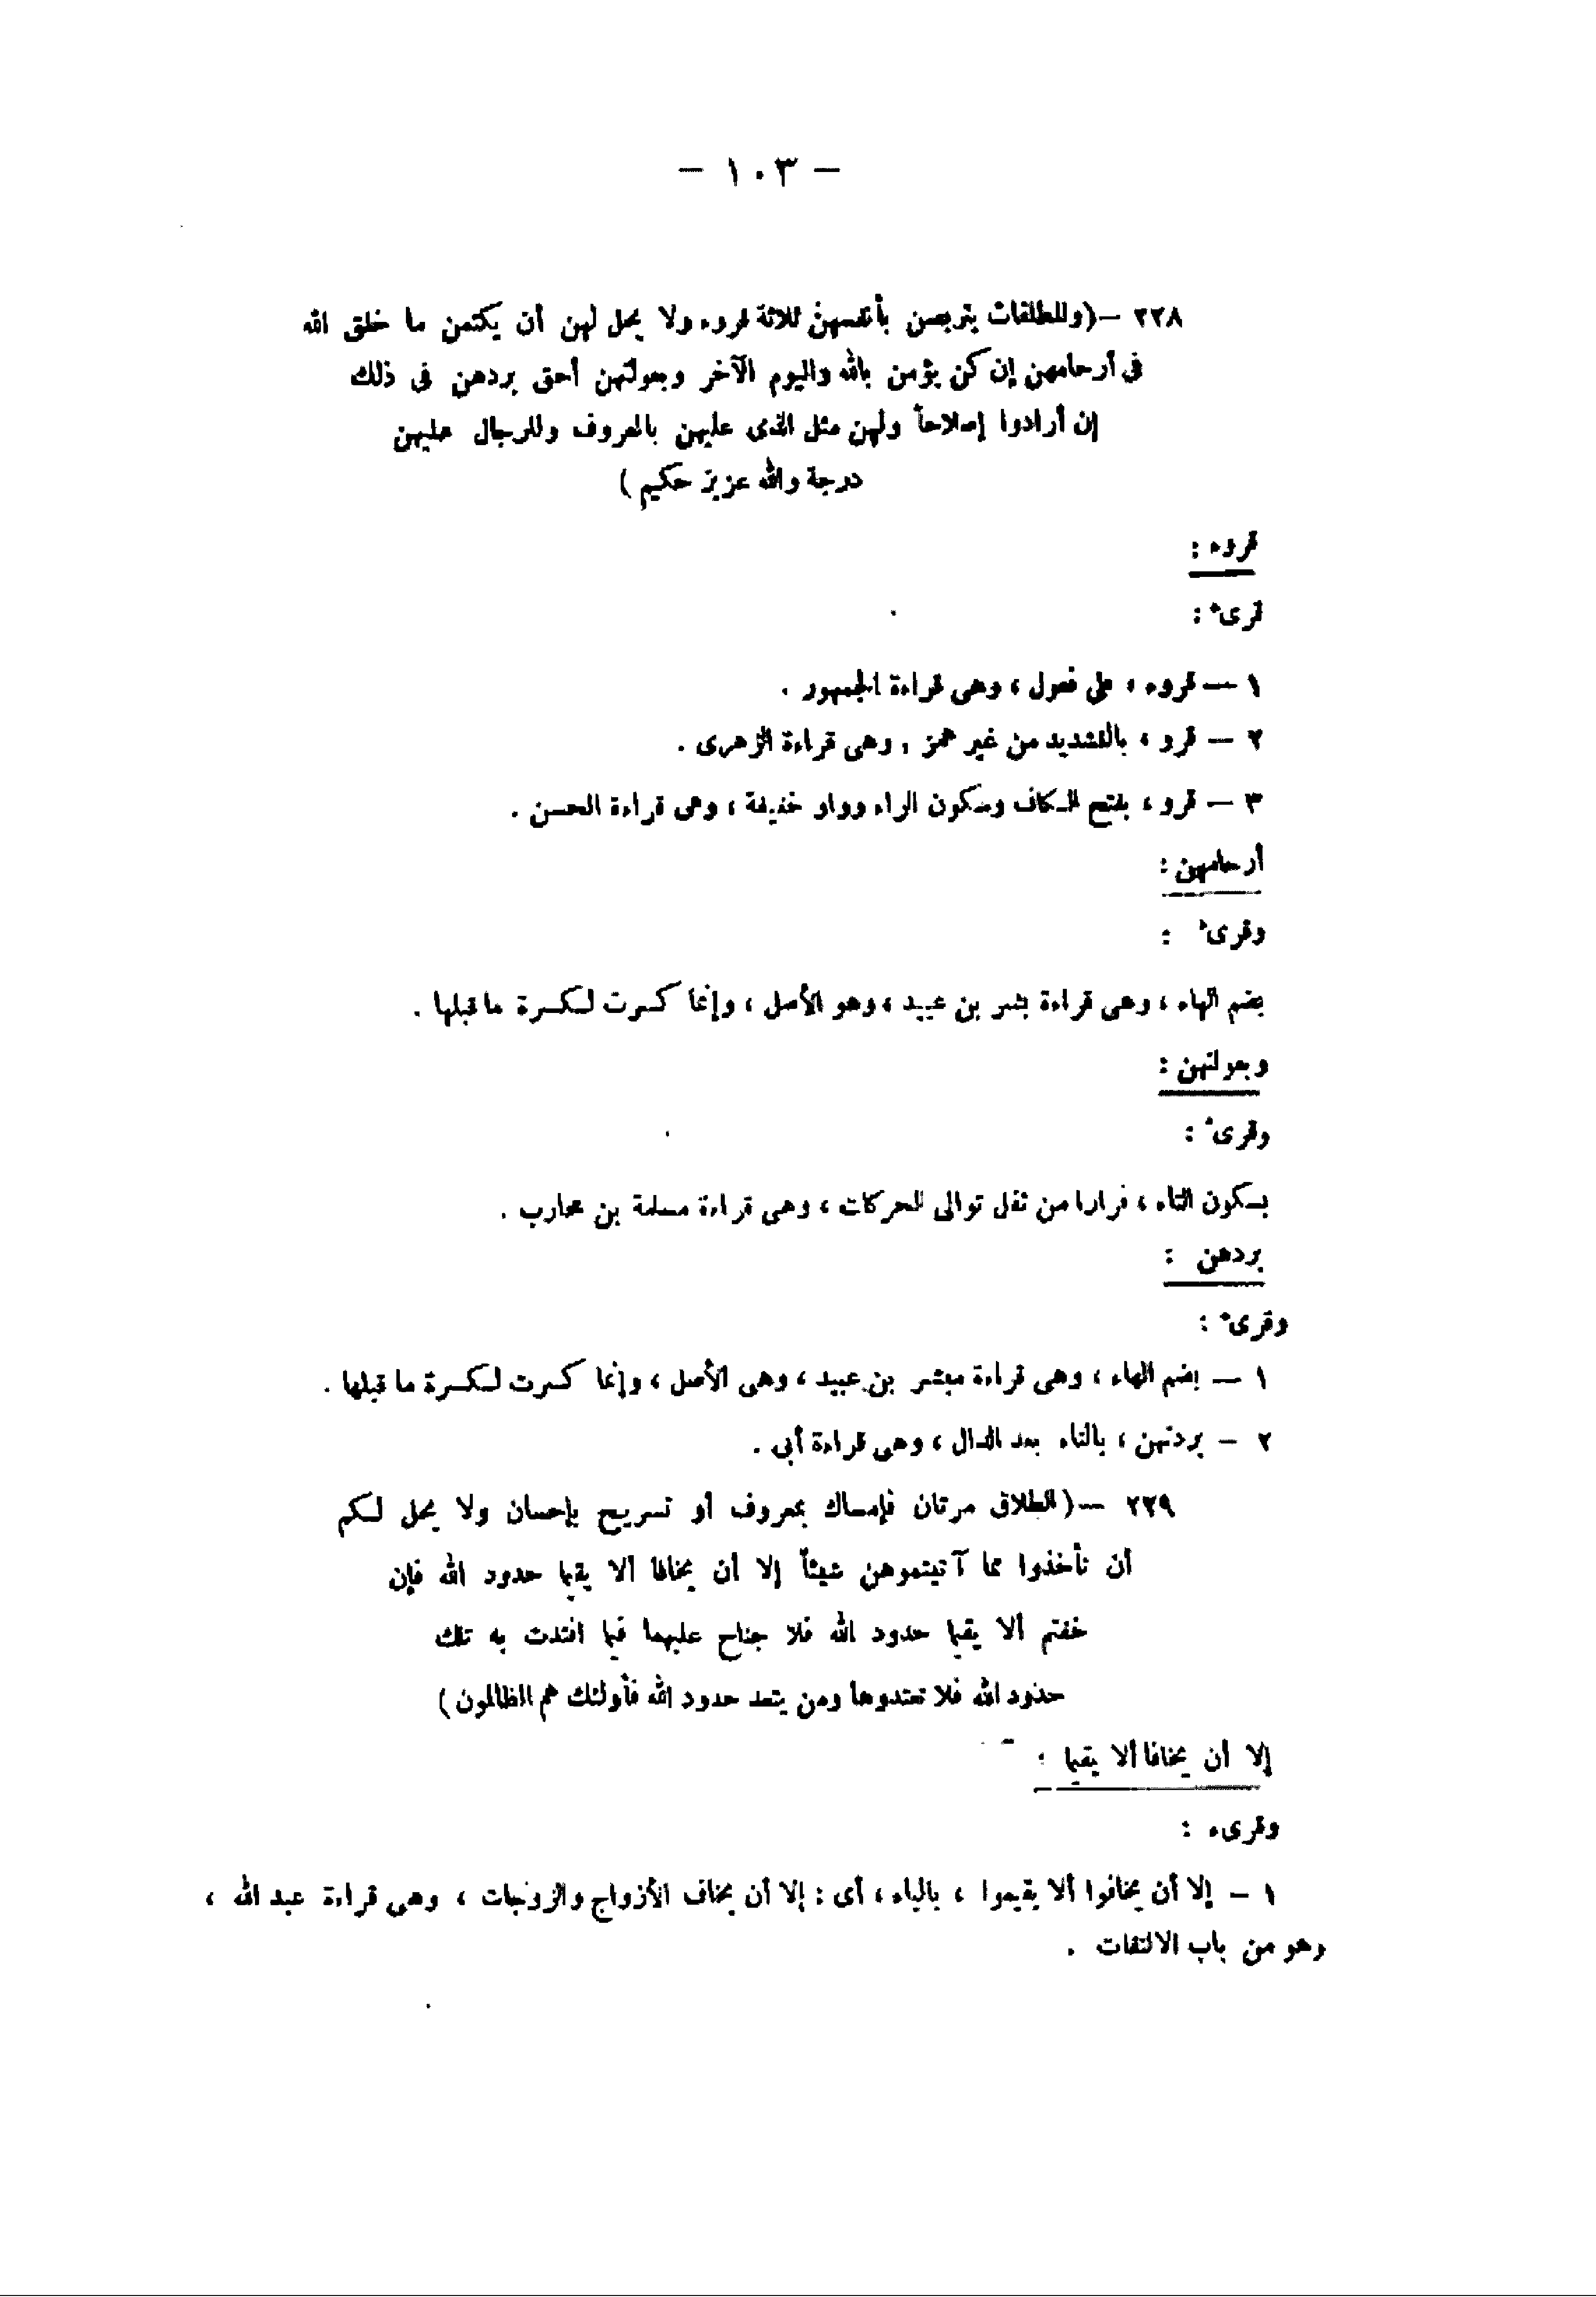 — ١٠٣ —
٢٢٨ — (والمطلقات يتربصن بأنفسهن ثلاثة قروء ولا يحل لهن أن يكتمن ما خلق الله
فى أرحامهن إن كن يؤمن بالله واليوم الآخر وبعولتهن أحق بردهن فى ذلك
إن أرادوا إصلاحاً ولهن مثل الذى عليهن بالمعروف وللرجال عليهن
درجة والله عزيز حكيم )
قروء :
قرىء :
١ — قروء ، على فعول ، وهى قراءة الجمهور .
٢ — قرو ، بالتشديد من غير همز ، وهى قراءة الزهرى .
٣ — قرو ، بفتح القاف وسكون الراء وواو خفيفة ، وهى قراءة الحسن .
أرحامهن :
وقرىء :
بضم الهاء ، وهى قراءة بشر بن عبيد ، وهو الأصل ، وإنما كسرت لكسرة ما قبلها .
وبعولتهن :
وقرىء :
بسكون التاء ، فرارا من ثقل توالى الحركات ، وهى قراءة مسلمة بن محارب .
بردهن :
وقرىء :
١ — بضم الهاء ، وهى قراءة مبشر بن عبيد ، وهى الأصل ، وإنما كسرت لكسرة ما قبلها .
٢ — بردتهن ، بالتاء بعد الدال ، وهى قراءة أبى .
٢٢٩ — (الطلاق مرتان فإمساك بمعروف أو تسريح بإحسان ولا يحل لكم
أن تأخذوا مما آتيتموهن شيئاً إلا أن يخافا ألا يقيما حدود الله فإن
خفتم ألا يقيما حدود الله فلا جناح عليهما فيما افتدت به تلك
حدود الله فلا تعتدوها ومن يتعد حدود الله فأولئك هم الظالمون )
إلا أن يخافا ألا يقيما :
وقرىء :
١ — إلا أن يخافوا ألا يقيموا ، بالياء ، أى : إلا أن يخاف الأزواج والزوجات ، وهى قراءة عبد الله ،
وهو من باب الالتفات .